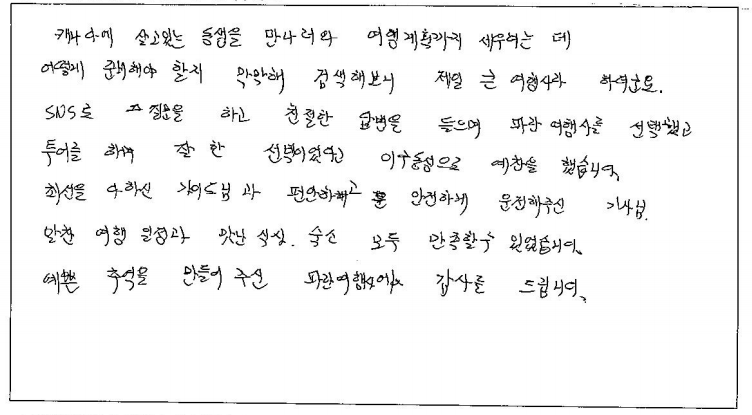 캐나다에 살고있는 동생을 만나러와 여행계획까지 세우려는 데
어떻게 준비해야 할지 막막해 검색해보니 제일 큰 여행사라 하더군요.
SNS로 질문을 하고 친절한 답변을 들으며 파란 여행사를 선택했고
투어를 하며 잘 한 선택이었다고 이구동성으로 예찬을 했습니다.
최선을 다하신 가이드님과 편안하고 안전하게 운전해주신 기사님.
알찬 여행 일정과 맛난 식사. 숙소 모두 만족할수 있었습니다.
예쁜 추억을 만들어 주신 파란여행사에 감사를 드립니다.